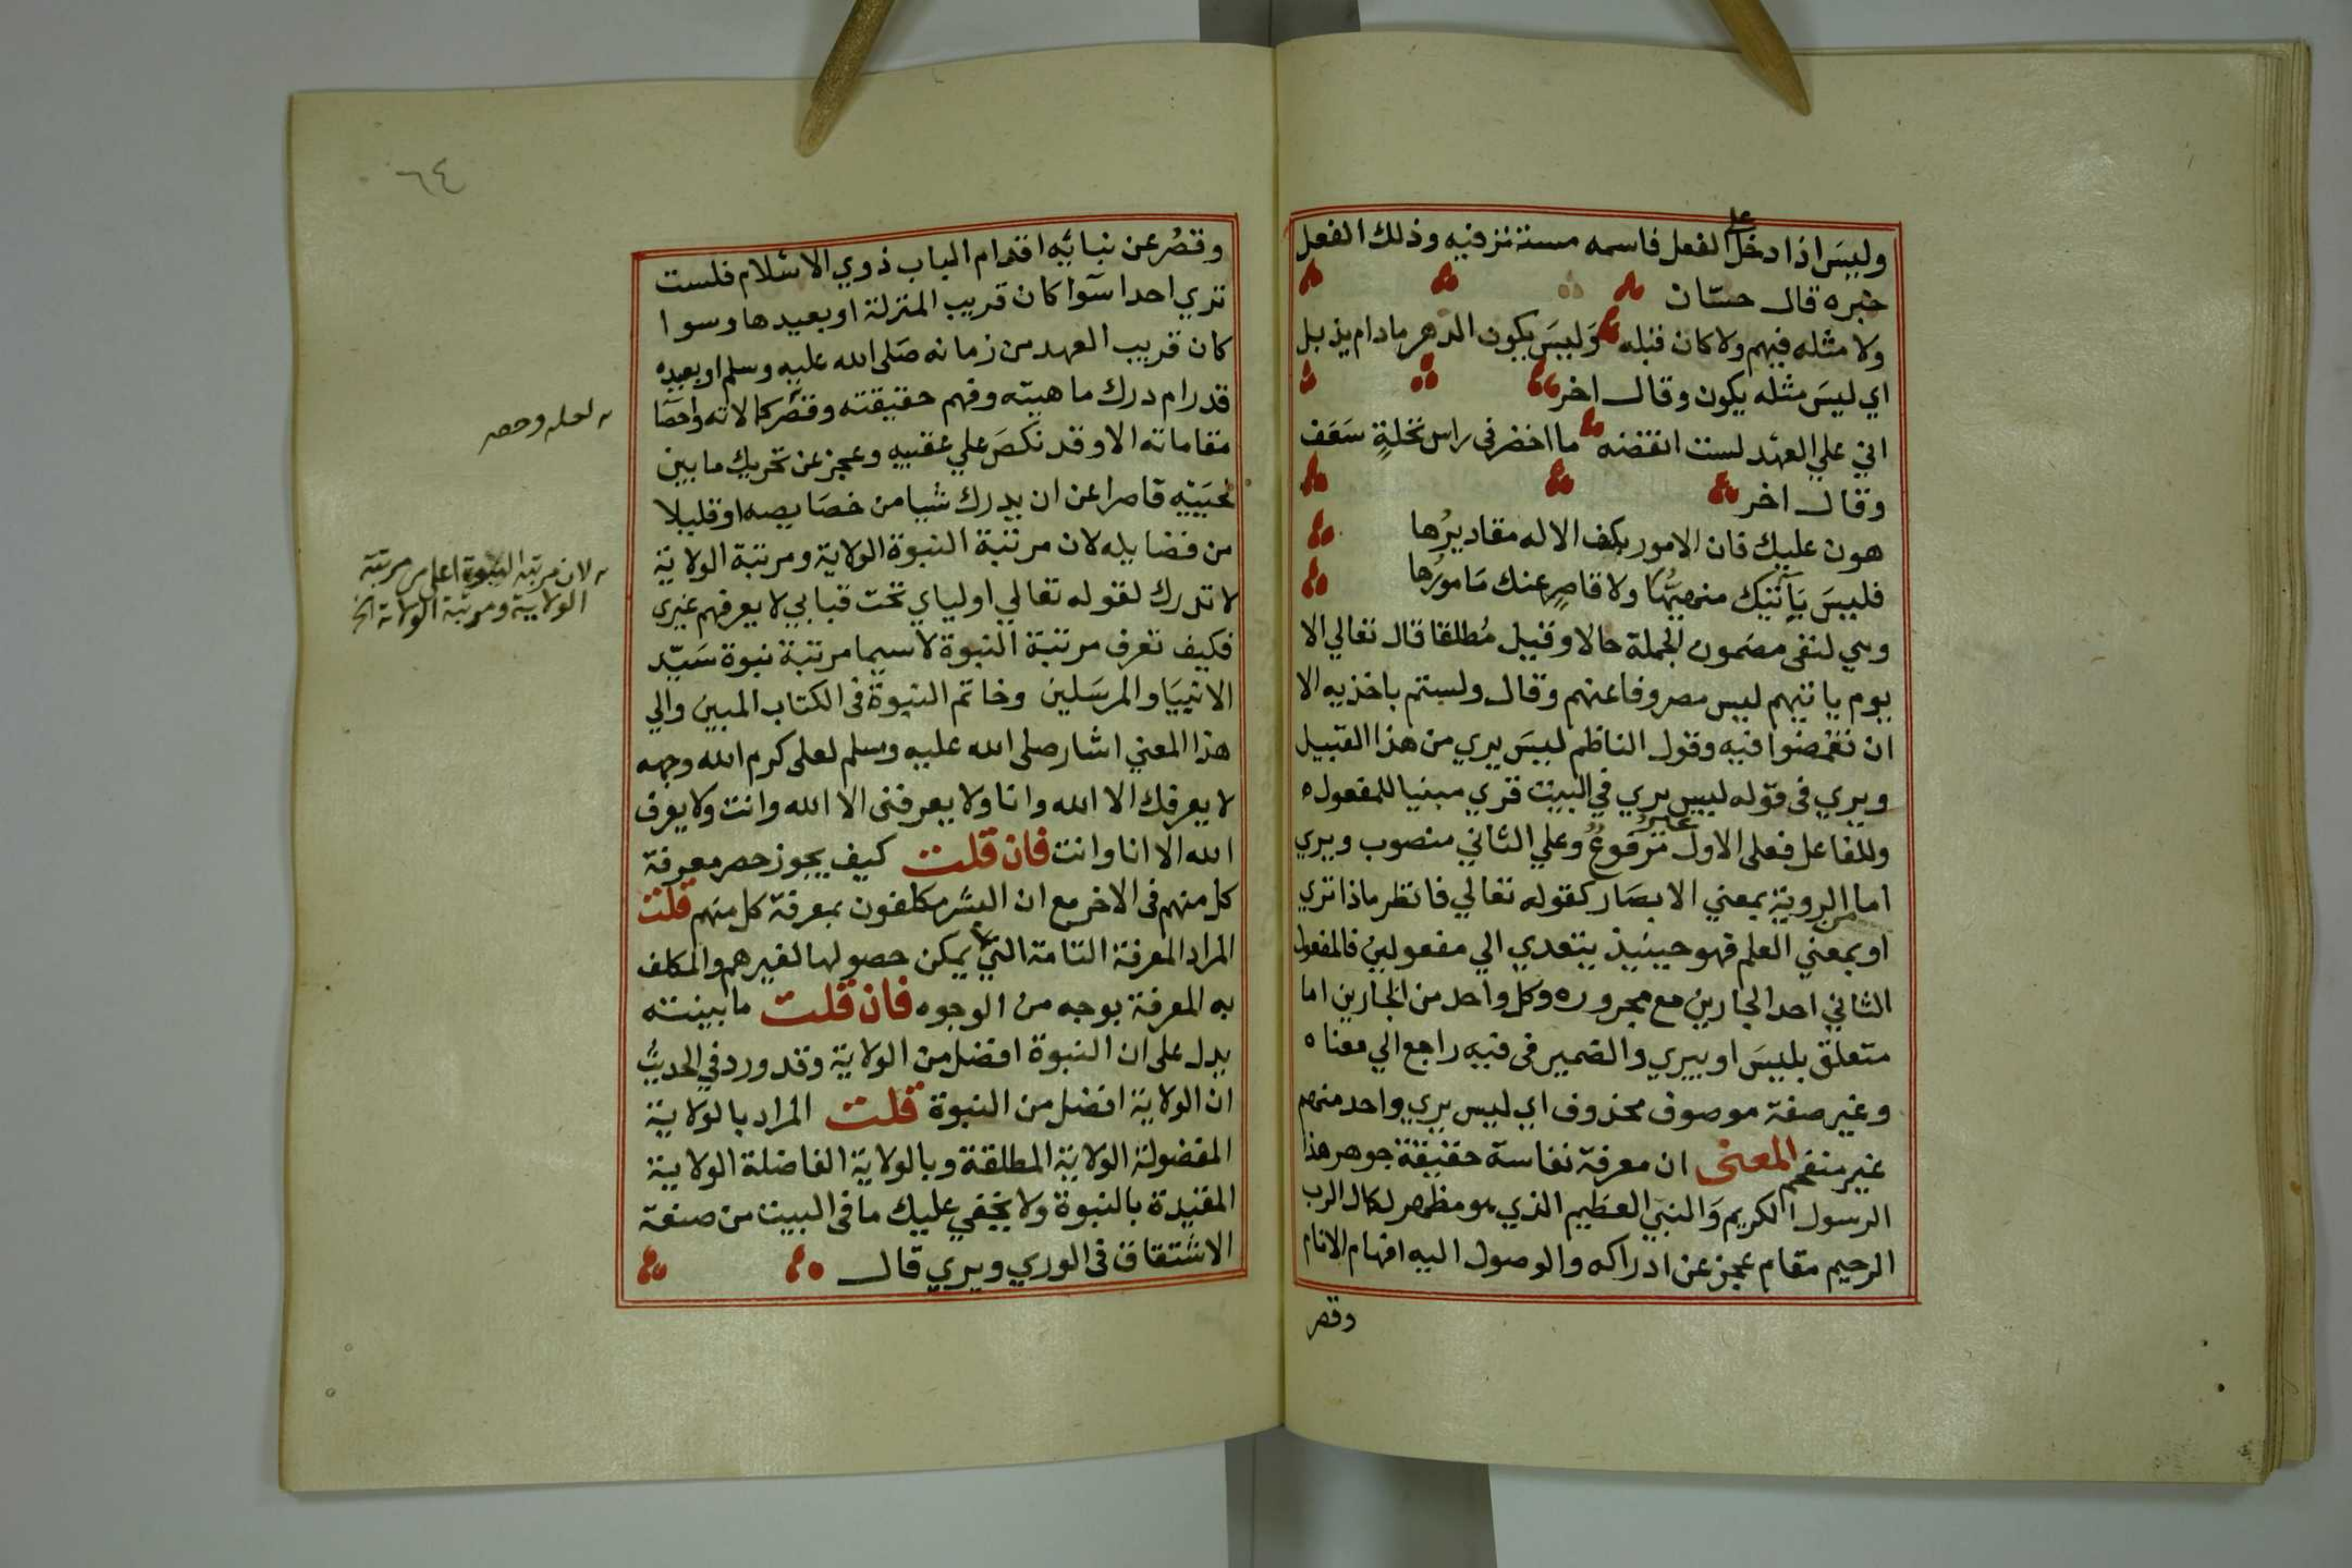 وليس اذا دخل على الفعل فاسمه مستتر فيه وذلك الفعل
خبره قال حسّان
ولا مثله فيهم ولا كان قبله وَليسَ يكون الدهر مادام يذبل
اي ليسَ مثله يكون وقال اخر
اني علي العهد لست انقضه ما اخضر في راس نخلةٍ سَعَف
وقال اخر
هون عليك فان الامور بكف الاله مقاديرُها
فليسَ يَآتيك منهيُّها ولا قاصرٍ عنك مَامورُها
وهي لنفي مضمون الجملة حالا وقيل مُطلقا قال تعالي الا
يوم ياتيهم ليس مصروفا عنهم وقال ولستم باخذيه الا
ان تغمضوا فيه وقول الناظم ليسَ يري من هذا القبيل
ويري في قوله ليس يري في البيت قري مبنيا للمفعول
وللفاعل فعلي الاول غير مرفوعُ وعلي الثاني منصوب ويري
اما من الروية بمعني الابصَار كقوله تعالي فانظر ماذا تري
او بمعني العلم فهو حينيذ يتعدي الي مفعولين فالمفعول
الثاني احد الجارين مع مجروره وكل واحد من الجارين اما
متعلق بليسَ او بيري والضمير في فيه راجع الي معناه
وغير صفة موصوف محذوف اي ليس يري واحد منهم
غير منفحم المعنى ان معرفة نفاسة حقيقة جوهر هذا
الرسول الكريم وَالنبي العظيم الذي هو مظهر لكمال الرب
الرحيم مقام عجز عن ادراكه والوصول اليه افهام الانام
وقصر
٦٤
وقصُر عن نبائيه اقدام الباب ذوي الاسلام فلست
تري احدا سوآ كان قريب المنزلة او بعيدها وسوا
كان قريب العهد من زمانه صَلى الله عليه وسلم او بعيده
قد رام درك ماهيته وفهم حقيقته وقصَّر كمالاته واحصَا
مقاماته الا وقد نكصَ علي عقبيه وعجز عن تحريك ما بين
لحيَيْه قاصرا عن ان يدرك شيا من خصَايصه او قليلا
من فضايله لان مرتبة النبوة الولاية ومرتبة الولاية
لا تدرك لقوله تعالي اولياي تحت قبابي لا يعرفهم غيري
فكيف تعرف مرتبة النبوة لا سيما مرتبة نبوة سَيّد
الانبيَا والمرسَلين وخاتم النبوة في الكتاب المبين والي
هذا المعني اشار صلى الله عليه وسلم لعلى كرم الله وجهه
لا يعرفك الا الله وانا ولا يعرفني الا الله وانت ولا يعرف
الله الا انا وانت فان قلت كيف يجوز حصر معرفة
كل منهم في الاخر مع ان البشر مكلفون بمعرفة كل منهم قلت
المراد المعرفة التامة التي لا يمكن حصولها لغيرهم والمكلف
به المعرفة بوجه من الوجوه فان قلت ما بينته
يدل على ان النبوة افضل من الولاية وقد ورد في الحديث
ان الولاية افضل من النبوة قلت المراد بالولاية
المفضولة الولاية المطلقة وبالولاية الفاضلة الولاية
المقيدة بالنبوة ولا يخفي عليك ما في البيت من صنعة
الاشتقاق في الوري ويري قال
لعله وحصر
لان مرتبة النبوة اعلى من مرتبة
الولاية ومرتبة الولاية الخ